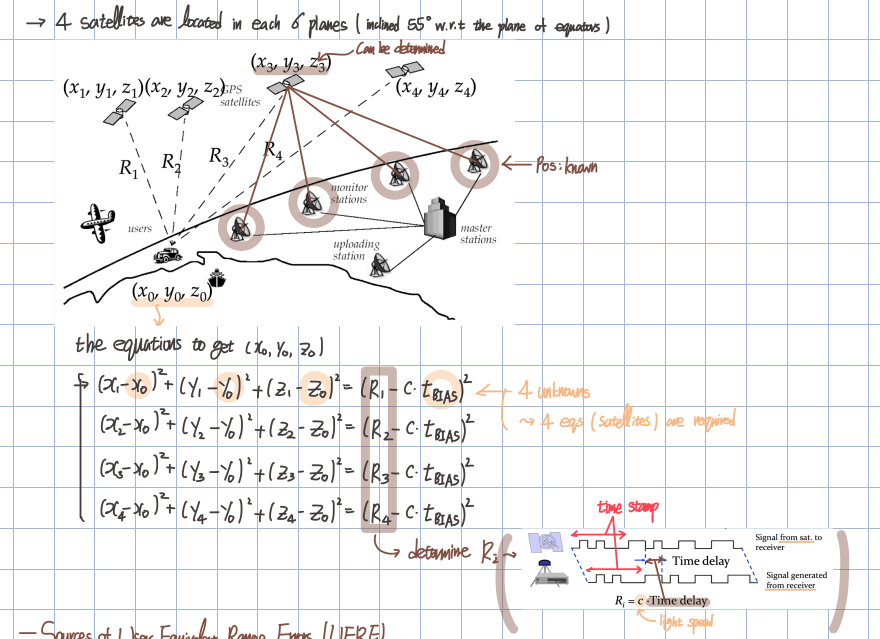 → 4 satellites are located in each 6 planes ( inclined 55° w.r.t the plane of equators )
Can be determined
(x₃, y₃, z₃)
(x₁, y₁, z₁)(x₂, y₂, z₂)
GPS
satellites
(x₄, y₄, z₄)
R₁
R₂
R₃
R₄
Pos: known
monitor
stations
users
master
stations
uploading
station
(x₀, y₀, z₀)
the equations to get (x₀, y₀, z₀)
(x₁-x₀)² + (y₁-y₀)² + (z₁-z₀)² = (R₁ - c·t_BIAS)²
4 unknowns
(x₂-x₀)² + (y₂-y₀)² + (z₂-z₀)² = (R₂ - c·t_BIAS)²
⤳ 4 eqs (satellites) are required
(x₃-x₀)² + (y₃-y₀)² + (z₃-z₀)² = (R₃ - c·t_BIAS)²
(x₄-x₀)² + (y₄-y₀)² + (z₄-z₀)² = (R₄ - c·t_BIAS)²
time stamp
determine Rᵢ →
Signal from sat. to
receiver
Time delay
Signal generated
from receiver
Rᵢ = c ·Time delay
light speed
— Sources of User Equivalent Range Errors (UERE)